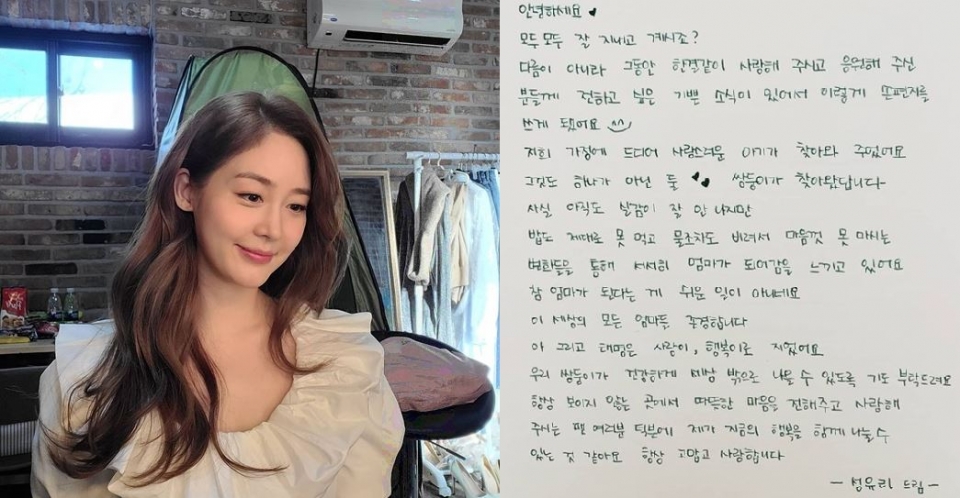 안녕하세요
모두모두 잘 지내고 계시죠?
다름이 아니라 그동안 한결같이 사랑해 주시고 응원해 주신
분들께 전하고 싶은 기쁜 소식이 있어서 이렇게 손편지를
쓰게 됐어요 ^^
저희 가정에 드디어 사랑스러운 아기가 찾아와 주었어요
그것도 하나가 아닌 둘 쌍둥이가 찾아왔답니다
사실 아직도 실감이 잘 안 나지만
밥도 제대로 못 먹고 물조차도 비려서 마음껏 못 마시는
변화들을 통해 서서히 엄마가 되어감을 느끼고 있어요
참 엄마가 된다는 게 쉬운 일이 아니네요
이 세상의 모든 엄마들 존경합니다
아 그리고 태명은 사랑이, 행복이로 지었어요
우리 쌍둥이가 건강하게 세상 밖으로 나올 수 있도록 기도 부탁드려요
항상 보이지 않는 곳에서 따뜻한 마음을 전해주고 사랑해
주시는 팬 여러분 덕분에 제가 지금의 행복을 함께 나눌 수
있는 것 같아요 항상 고맙고 사랑합니다
- 성유리 드림 -